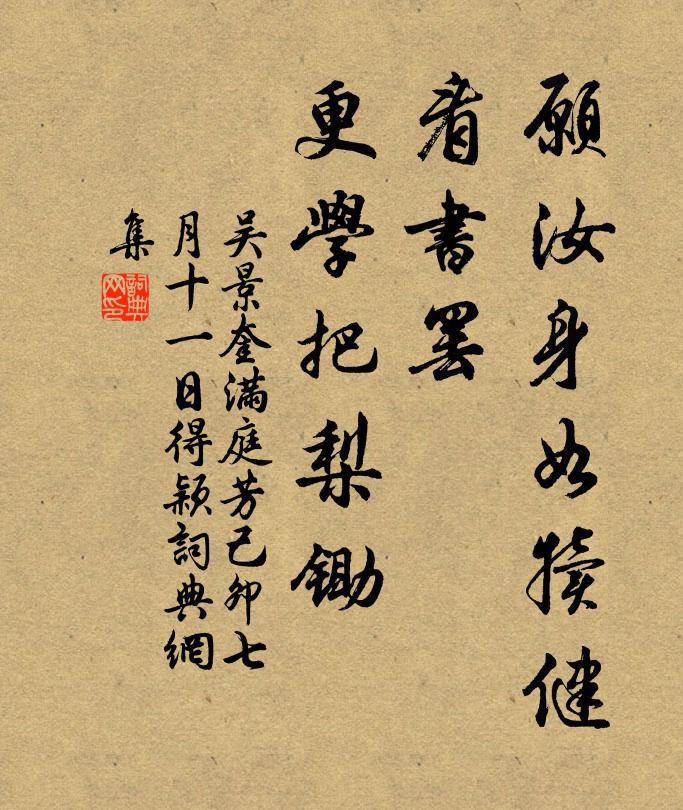 願汝身如犢健
看書罷
更學把梨鋤
吴景奎滿庭芳己卯七
月十一日得穎詞典網
集
詞典
网印